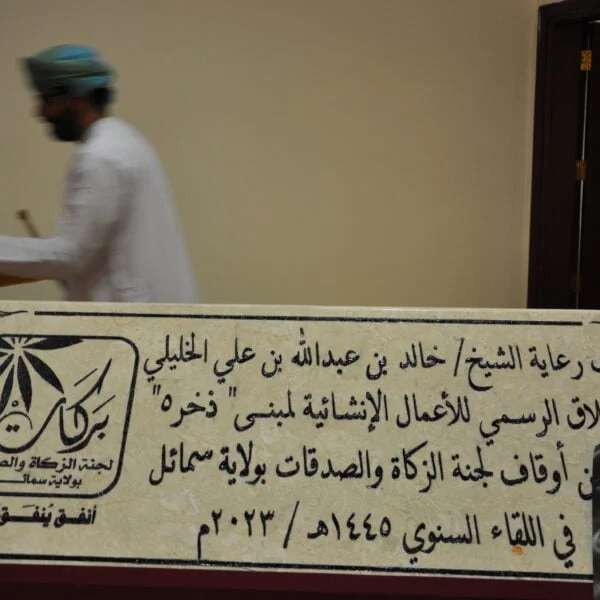 رعاية الشيخ/ خالد بن عبدالله بن علي الخليلي
لاق الرسمي للأعمال الإنشائية لمبنى " ذخره"
من أوقاف لجنة الزكاة والصدقات بولاية سمائل
في اللقاء السنوي ١٤٤٥هـ / ٢٠٢٣م
بركات
لجنة الزكاة والص
بولاية سمائـ
أنفق يُنفق